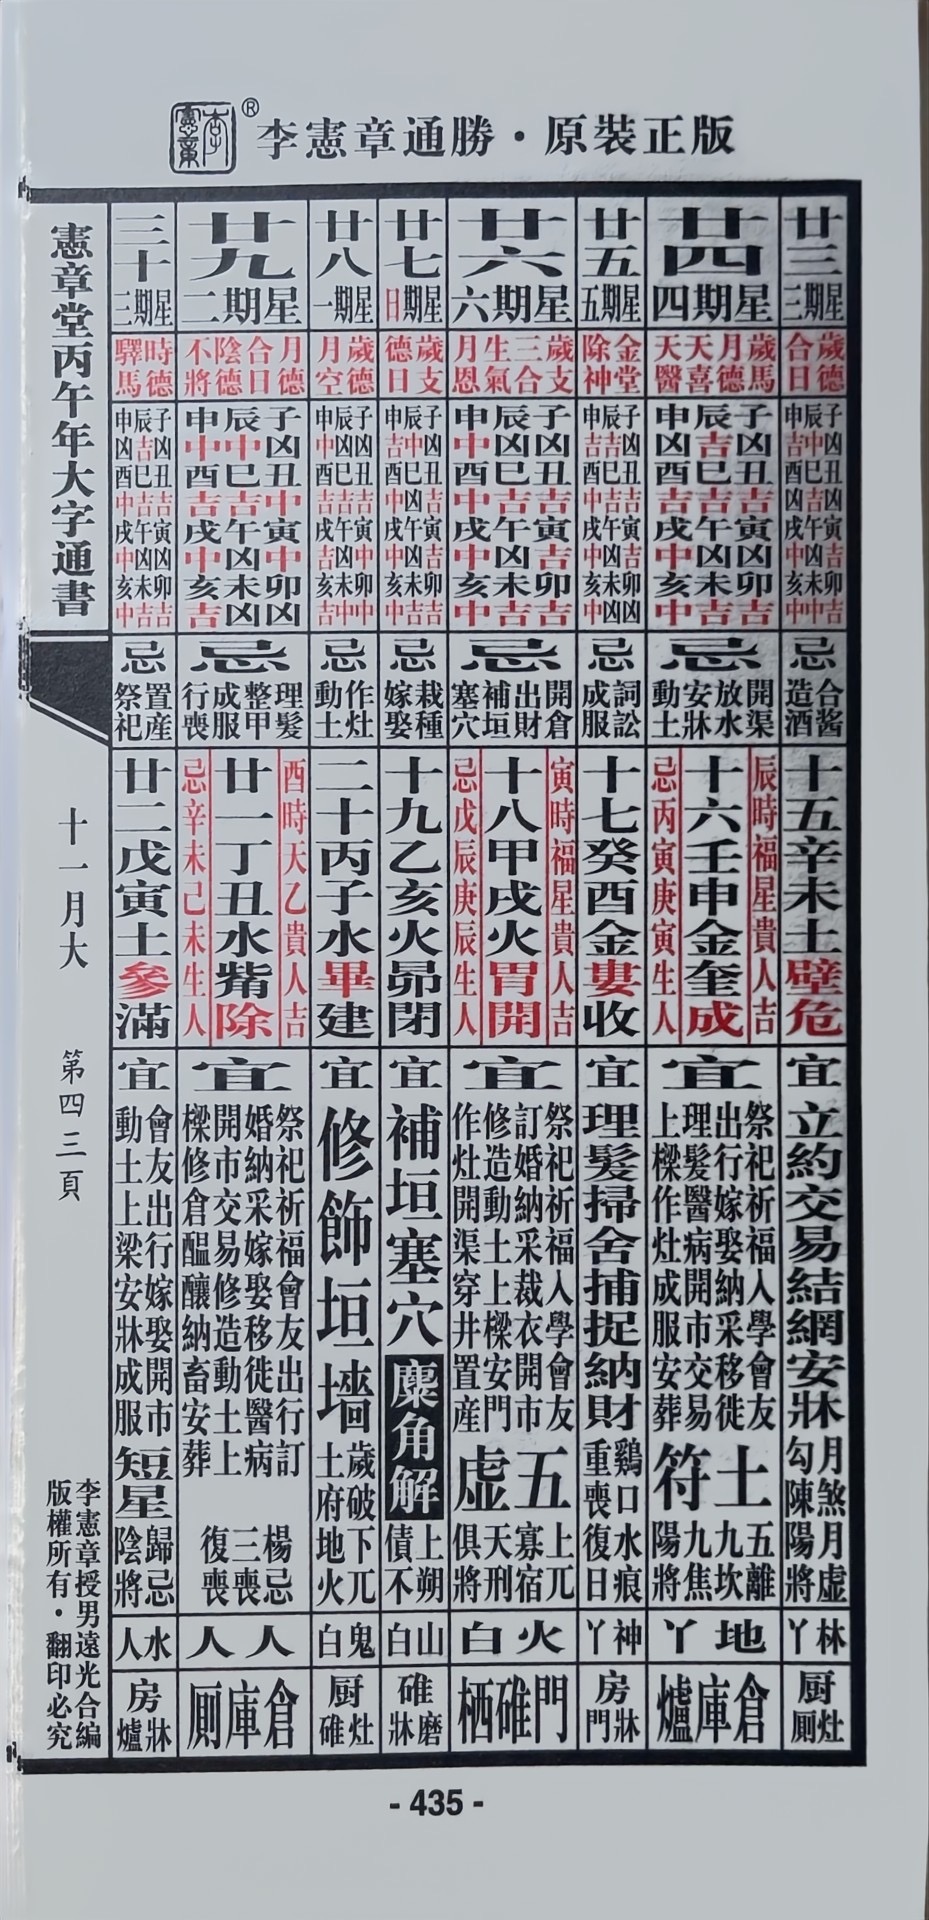 李憲章
®
李憲章通勝·原裝正版
廿三
星期三
歲德
合日
子凶丑吉寅吉卯吉
辰中巳吉午凶未中
申吉酉凶戌中亥中
忌
合酱
造酒
十五辛未土壁危
宜
立約交易結網安牀
月煞月虛
勾陳陽將
林丫
厨灶厠
廿四
星期四
歲馬
月德
天喜
天醫
子凶丑吉寅凶卯吉
辰吉巳吉午凶未吉
申凶酉吉戌中亥中
忌
開渠
放水
安牀
動土
辰時福星貴人吉
十六壬申金奎成
忌丙寅庚寅生人
宜
祭祀祈福入學會友
出行嫁娶納采移徙
理髮醫病開市交易
上樑作灶成服安葬
土符
五離
九坎
九焦
陽將
地丫
倉庫爐
廿五
星期五
金堂
除神
忌
詞訟
成服
十七癸酉金婁收
宜
理髮掃舍捕捉納財
鷄口水痕
重喪復日
神丫
房牀門
廿六
星期六
歲支
三合
生氣
月恩
子凶丑吉寅吉卯吉
辰凶巳吉午凶未吉
申中酉中戌中亥中
忌
開倉
出財
補垣
塞穴
寅時福星貴人吉
十八甲戌火胃開
忌戊辰庚辰生人
宜
祭祀祈福入學會友
訂婚納采裁衣開市
修造動土上樑安門
作灶開渠穿井置産
五虛
上兀
寡宿
天刑
俱將
火白
門碓栖
廿七
星期日
歲支
德日
忌
栽種
嫁娶
十九乙亥火昴閉
宜
補垣塞穴
麋角解
上朔
債不
山白
碓磨牀
廿八
星期一
歲德
月空
忌
作灶
動土
二十丙子水畢建
宜
修飾垣墻
歲破下兀
土府地火
鬼白
厨灶碓
廿九
星期二
月德
合日
陰德
不將
子凶丑中寅中卯凶
辰中巳吉午凶未凶
申中酉吉戌中亥吉
忌
理髮
整甲
成服
行喪
酉時天乙貴人吉
廿一丁丑水觜除
忌辛未己未生人
宜
祭祀祈福會友出行訂
婚納采嫁娶移徙醫病
開市交易修造動土上
樑修倉醞釀納畜安葬
楊忌
三喪
復喪
人人
倉庫厠
三十
星期三
時德
驛馬
忌
置産
祭祀
廿二戊寅土參滿
宜
會友出行嫁娶開市
動土上梁安牀成服
短星
歸忌
陰將
水人
房牀爐
憲章堂丙午年大字通書
十一月大
第四三頁
李憲章授男遠光合編
版權所有·翻印必究
- 435 -